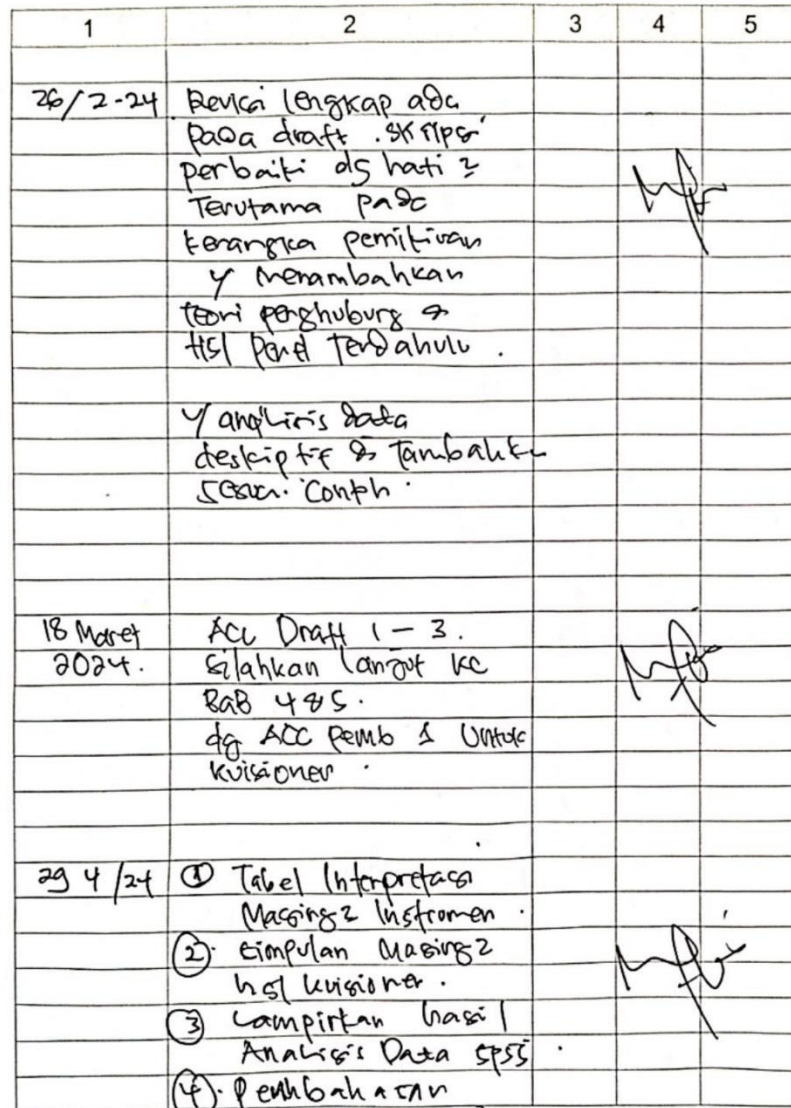 1 2 3 4 5
26/2-24 Revisi lengkap ada
pada draft . skripsi
perbaiki dg hati2
Terutama pada
kerangka pemikiran
y menambahkan
teori penghubung &
Hsl Penel Terdahulu .
y analisis data
deskriptif di Tambahk
sesuai Contoh .
18 Maret ACC Draft 1 - 3 .
2024. Silahkan lanjut ke
BaB 4 & 5 .
dg ACC Pemb 1 Untuk
kuisioner .
29 4/24 ① Tabel Interpretasi
Masing2 Instromen .
② . Simpulan Masing2
hsl kuisioner .
③ Lampirkan hasil
Analisis Data SPSS .
④ . Pembahasan